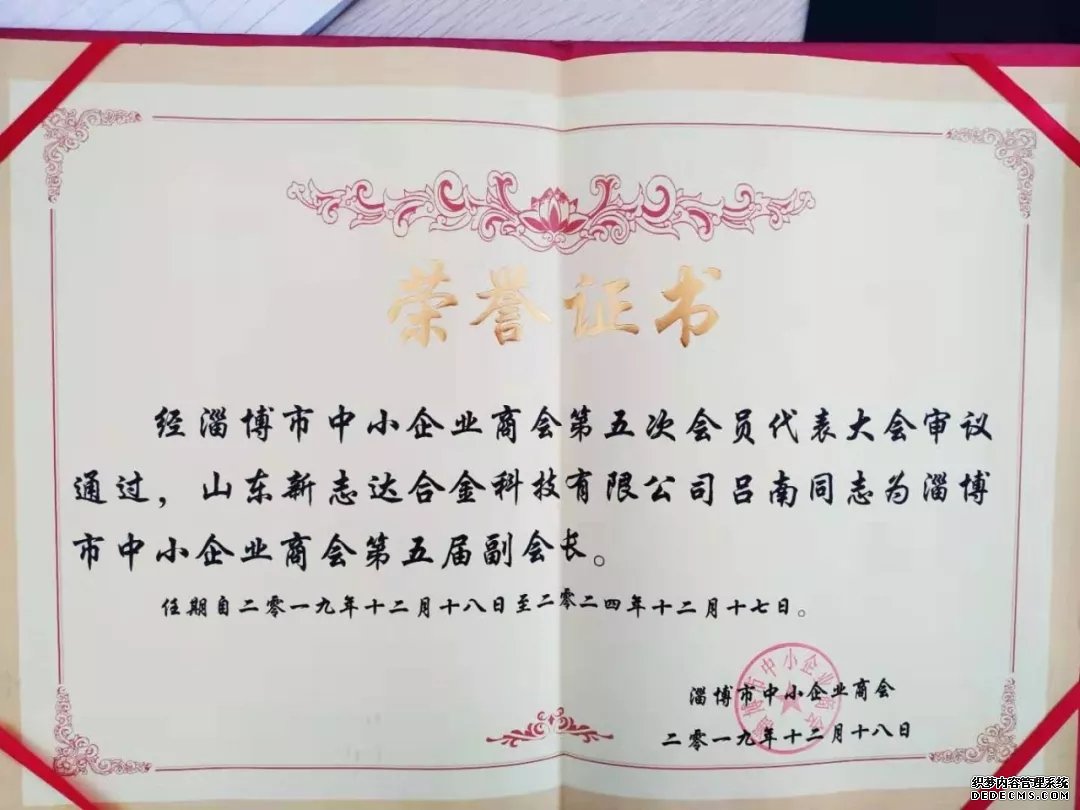 荣誉证书
经淄博市中小企业商会第五次会员代表大会审议
通过，山东新志达合金科技有限公司吕南同志为淄博
市中小企业商会第五届副会长。
任期自二零一九年十二月十八日至二零二四年十二月十七日。
淄博市中小企业商会
二零一九年十二月十八日
淄博市中小企业商会
织梦内容管理系统
DEDECMS.COM